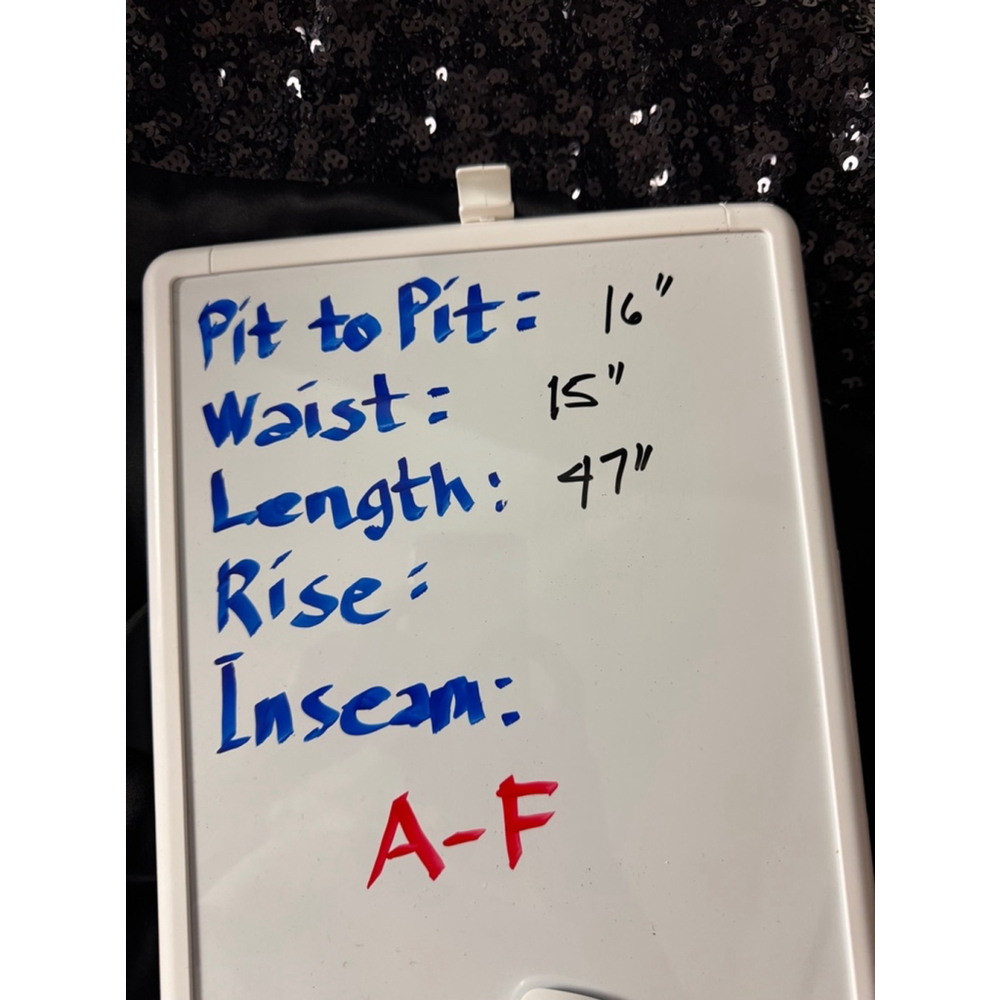 Pit to Pit: 16"
Waist: 15"
Length: 47"
Rise:
Inseam:
A-F